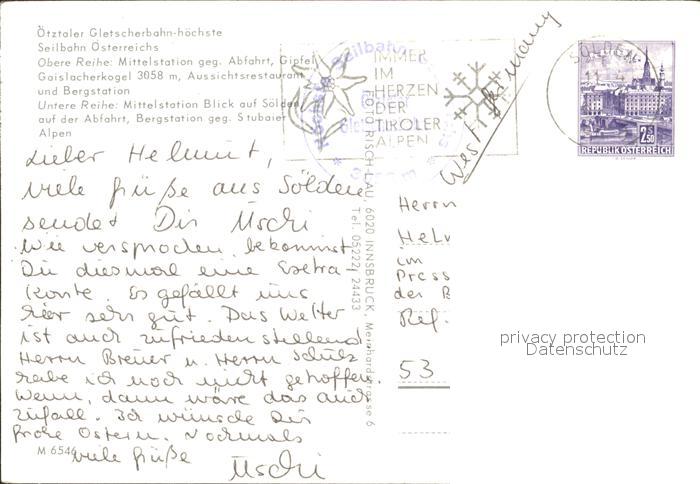 Ötztaler Gletscherbahn-höchste
Seilbahn Österreichs
Obere Reihe: Mittelstation geg. Abfahrt, Gipfel
Gaislacherkogel 3058 m, Aussichtsrestaurant
und Bergstation
Untere Reihe: Mittelstation Blick auf Sölden
auf der Abfahrt, Bergstation geg. Stubaier
Alpen
Lieber Helmut,
viele Grüße aus Sölden
sendet Dir Uschi
Wie versprochen, bekommst
Du diesmal eine Extra-
karte. Es gefällt uns
hier sehr gut. Das Wetter
ist auch zufriedenstellend
Herrn Breuer u. Herrn Schulz
habe ich noch nicht getroffen.
Wenn, dann wäre das auch
Zufall. Ich wünsche Dir
frohe Ostern. Nochmals
viele Grüße
Uschi
M 6546
FOTO RISCH-LAU, 6020 INNSBRUCK, Meinhardstrasse 6
Tel. 05222/24433
Seilbahn
IMMER
IM
HERZEN
DER
TIROLER
ALPEN
SÖLDEN
2.50
REPUBLIK ÖSTERREICH
West Germany
Herrn
Helm
im
Press
der B
Ref.
53
privacy protection
Datenschutz